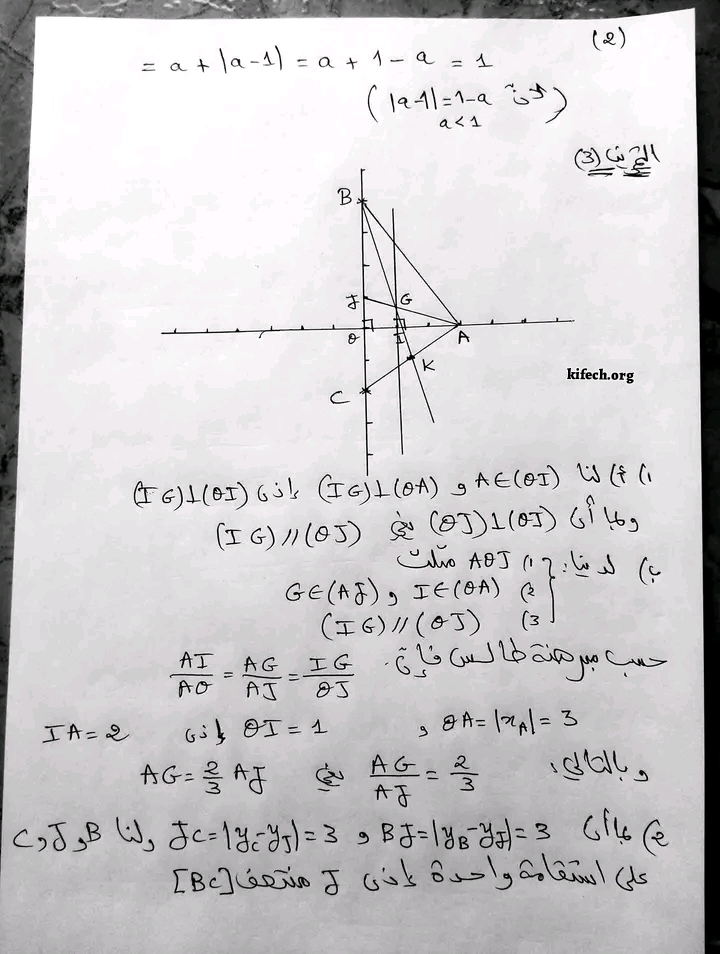 (2)
= a + |a-1| = a + 1 - a = 1
( |a-1| = 1-a لأنّ a<1 )
التمرين (3)
B
J
G
O
I
A
K
C
kifech.org
1) أ) لنا A∈(OI) و (IG)⊥(OA) إذن (IG)⊥(OI)
وبما أن (OJ)⊥(OI) يعني (IG)//(OJ)
ب) لدينا: 1) AOJ مثلث
2) I∈(OA) و G∈(AJ)
3) (IG)//(OJ)
حسب مبرهنة طالس فإن: AI/AO = AG/AJ = IG/OJ
OA=|x_A|=3 و OI=1 إذن IA=2
وبالتالي: AG/AJ = 2/3 يعني AG=2/3 AJ
بما أن BJ=|y_B-y_J|=3 و JC=|y_C-y_J|=3 ولنا B و J و C
على استقامة واحدة إذن J منتصف [BC]